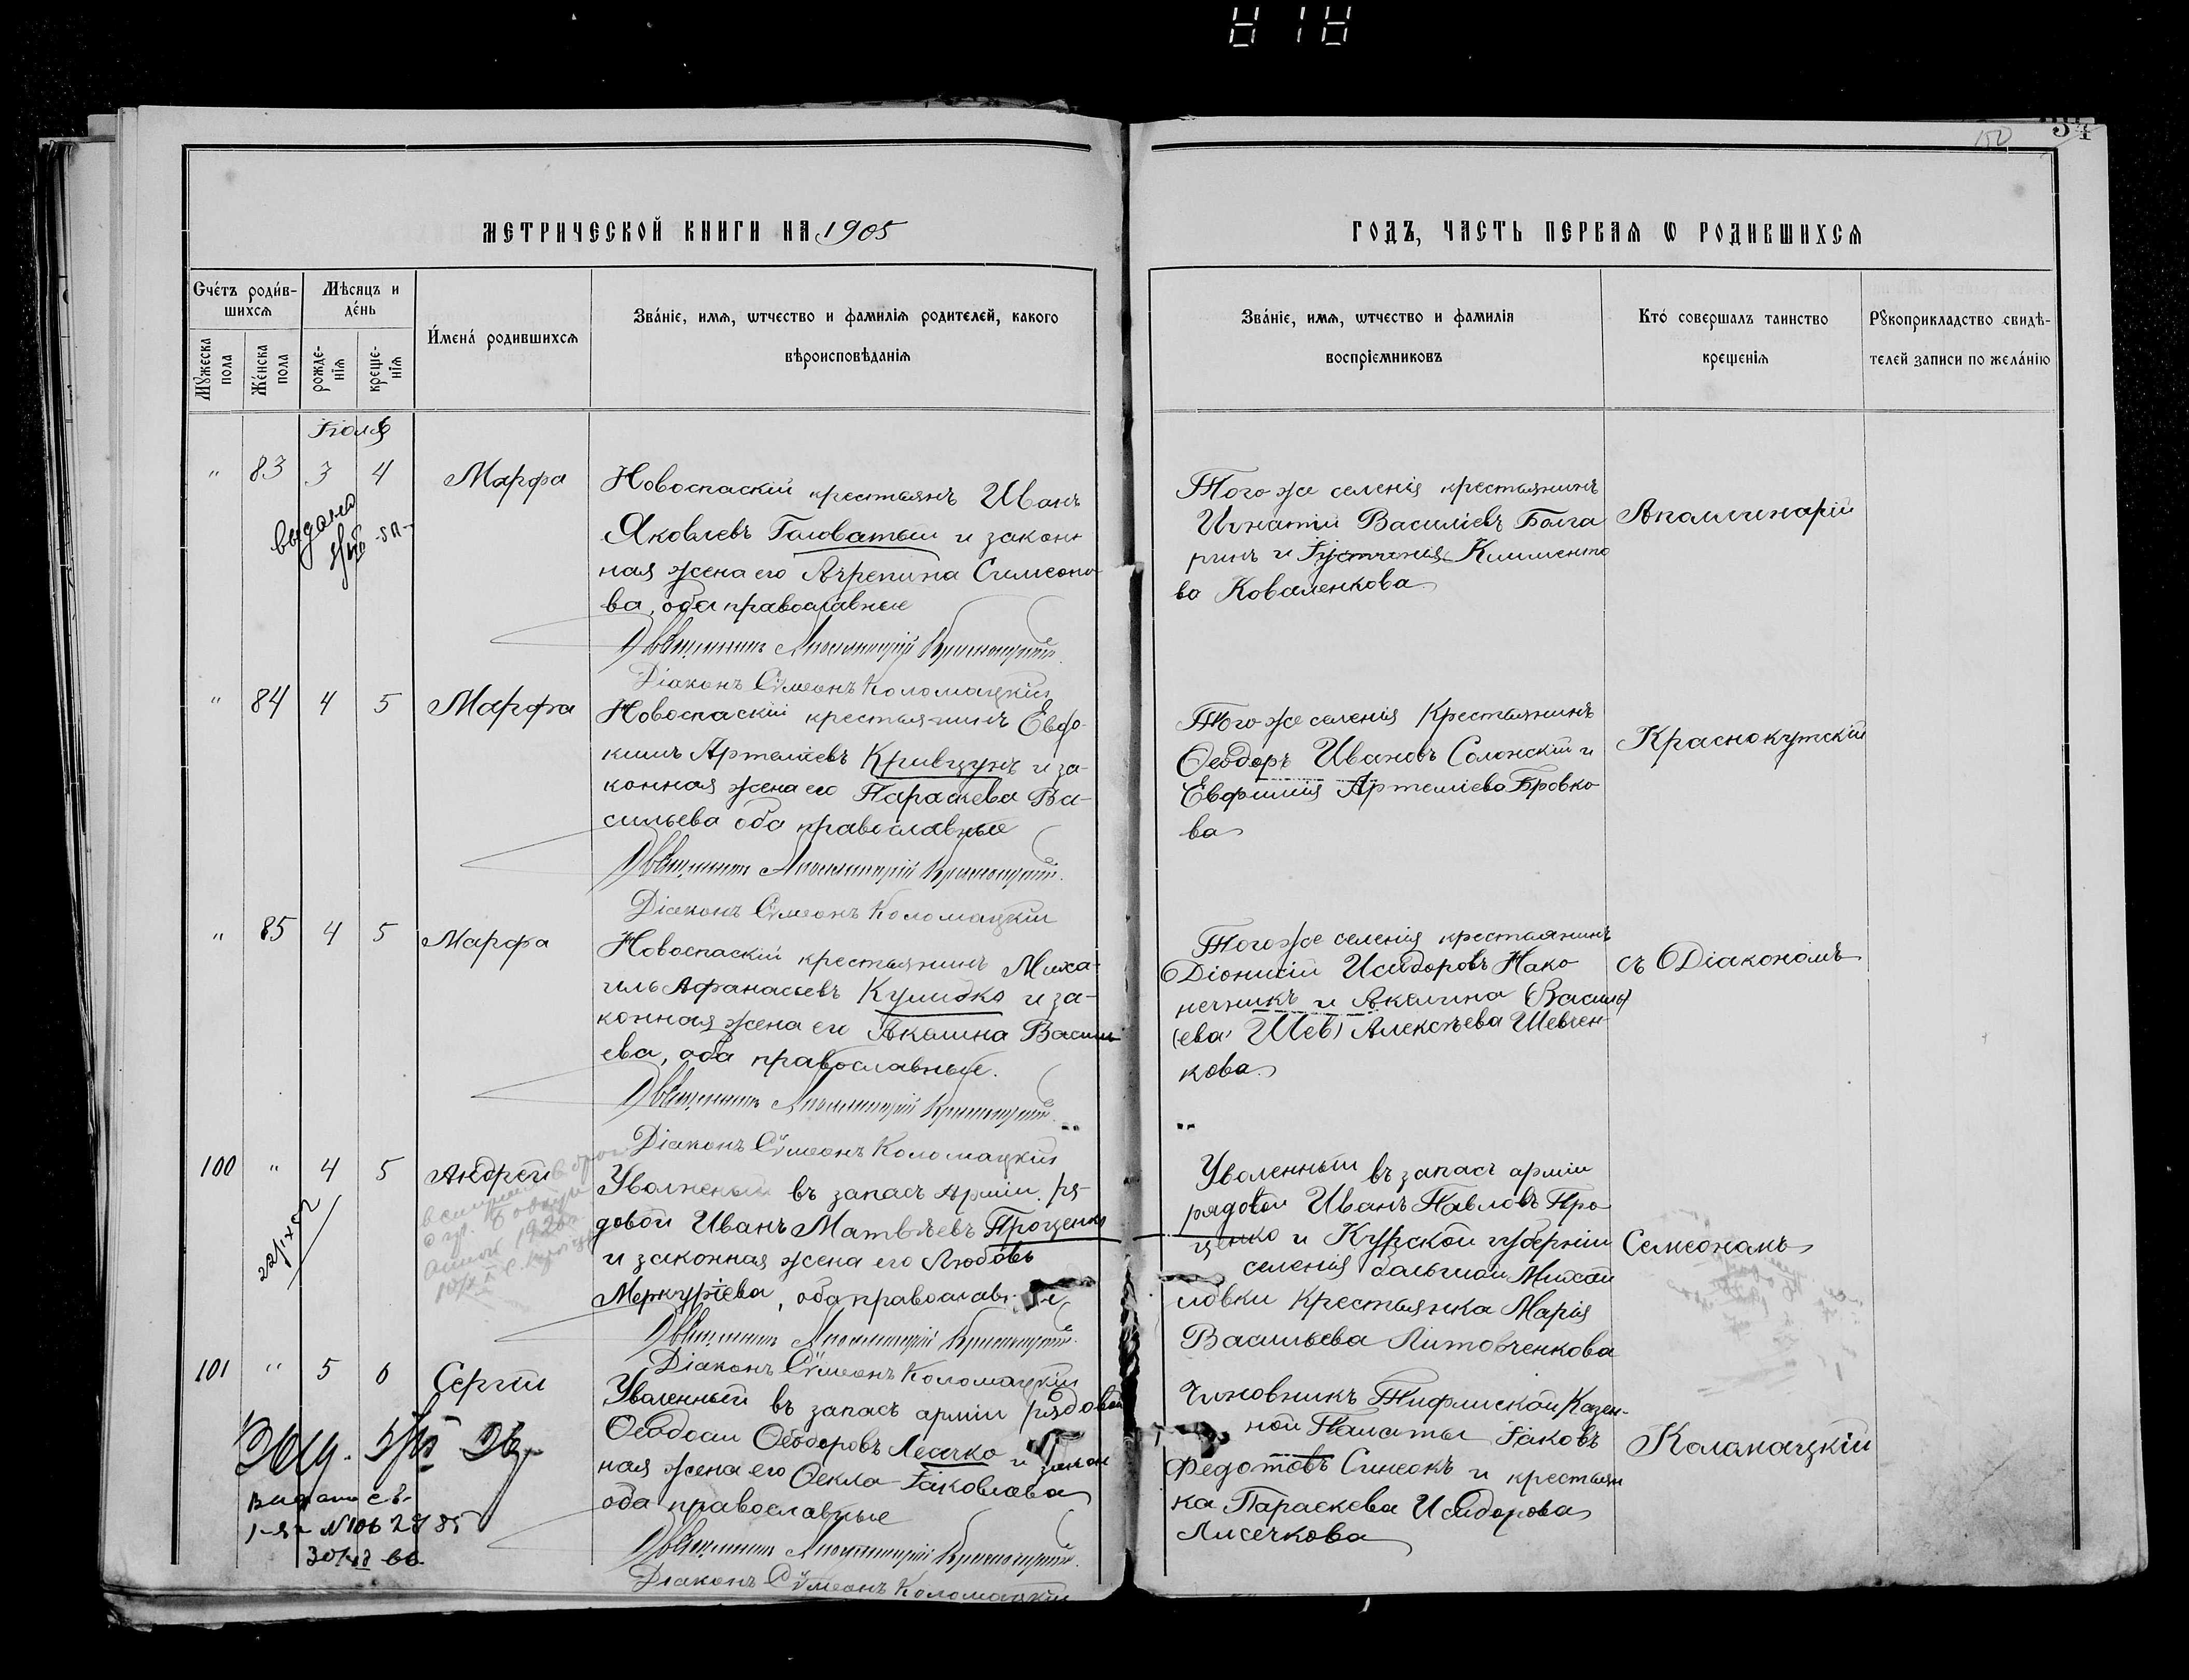 818
150
34
МЕТРИЧЕСКОЙ КНИГИ НА 1905
ГОДЪ, ЧАСТЬ ПЕРВАЯ Ѡ РОДИВШИХСѦ
Счéтъ роди́в-
шихсѧ
Мѣсяцъ и
дéнь
Мꙋжеска
пола
Жéнска
пола
рожде-
нїѧ
креще-
нїѧ
И́мена́ родившихсѧ
Звáнїе, имѧ, ѿтчество и фамилїѧ родителей, какого
вѣроисповѣданїѧ
Звáнїе, имѧ, ѿтчество и фамилїѧ
воспрїемниковъ
Ктó совершалъ таинство
крещенїѧ
Рꙋкоприкладство свидѣ-
телей записи по желáнїю
Іюля
" 83 3 4 Марфа
Новоспаскій крестьянъ Иванъ
Яковлевъ Головатый и закон
ная жена его Агрепина Симеоно-
ва, оба православные
Священникъ Аполлинарій Краснокутскій
Діаконъ Сѵмеонъ Коломацкій
Того же селенія крестьянинъ
Игнатій Василіевъ Болга
ринъ и Іустинія Климента
ва Коваленкова
Аполлинарій
выдано
" 84 4 5 Марфа
Новоспаскій крестьянинъ Евдо-
кимъ Артеміевъ Кривцунъ и за-
конная жена его Параскева Ва-
сильева оба православные
Священникъ Аполлинарій Краснокутскій
Діаконъ Сѵмеонъ Коломацкій
Того же селенія Крестьянинъ
Ѳеодоръ Ивановъ Солонскій и
Евфимія Артеміева Бровко
ва
Краснокутскій
" 85 4 5 Марфа
Новоспаскій крестьянинъ Миха-
илъ Афанасьевъ Кулидка и за-
конная жена его Акелина Василь
ева, оба православные.
Священникъ Аполлинарій Краснокутскій
Діаконъ Сѵмеонъ Коломацкій
Того же селенія крестьянинъ
Діонисій Исидоровъ Нако
нечникъ и Акелина (Василь)
(ева Шев) Алексѣева Шевчен-
кова
съ Діакономъ
100 " 4 5 Андрей
Уволненый въ запасъ Арміи ря-
довой Иванъ Матвѣевъ Проценко
и законная жена его Любовь
Меркуріева, оба православ
Священникъ Аполлинарій Краснокутскій
Діаконъ Сѵмеонъ Коломацкій
Уволенный въ запасъ арміи
рядовой Иванъ Павловъ Про
ценко и Курской губерніи
селенія Больтой Михай
ловки крестьянка Марія
Васильева Литовченкова
Семеономъ
22/IX 52
101 " 5 6 Сергій
Уволенный въ запасъ арміи рядовой
Ѳеодосій Ѳеодоровъ Лесечко и закон
ная жена его Ѳекла Іаковлева
оба православные
Священникъ Аполлинарій Краснокутскій
Діаконъ Сѵмеонъ Коломацкій
Чиновникъ Тифлиской Казен-
ной Палаты Іаковъ
Федотовъ Синеокъ и крестьян
ка Параскева Исидорова
Лисечкова
Коламацкій